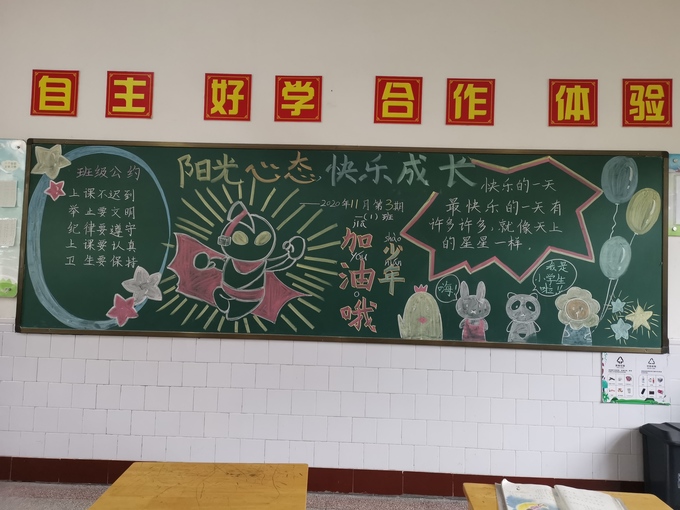 自主 好学 合作 体验
阳光心态 快乐成长
——2020年11月第3期
一(1)班
班级公约
上课不迟到
举止要文明
纪律要遵守
上课要认真
卫生要保持
jiā
加
yóu
油
哦
shào
少
nián
年
快乐的一天
最快乐的一天有
许多许多,就像天上
的星星一样。
嗨!
我是
小学生
啦